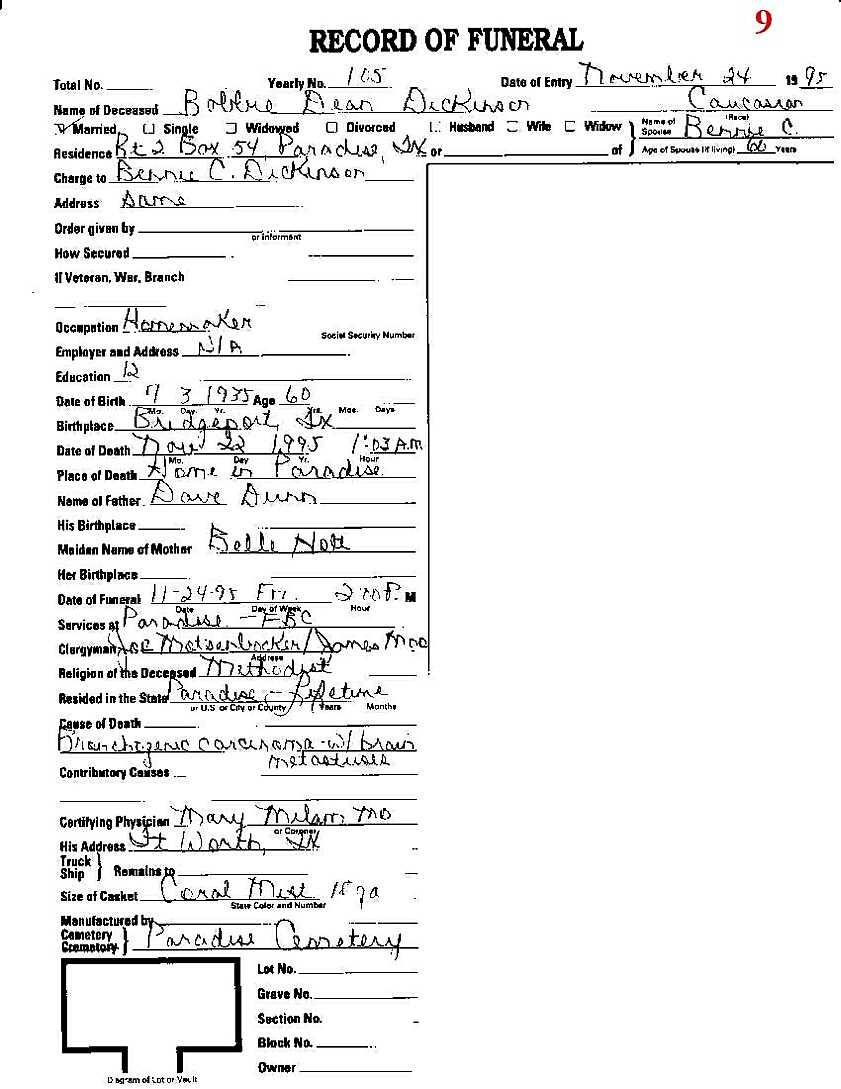 9
RECORD OF FUNERAL
Total No. Yearly No. 105 Date of Entry November 24 1995
Name of Deceased Bobbie Dean Dickinson Caucasian
(Race)
Married Single Widowed Divorced Husband Wife Widow Name of Spouse Bernie C.
Residence Rt 2 Box 54, Paradise, Tx or of Age of Spouse (if living) 60 Years
Charge to Bernie C. Dickinson
Address Same
Order given by
or informant
How Secured
If Veteran, War, Branch
Occupation Homemaker
Social Security Number
Employer and Address N/A
Education 12
Date of Birth 7 3 1935 Age 60
Mo. Day Yr. Yrs. Mos. Days
Birthplace Bridgeport, Tx
Date of Death Nov 22 1995 1:03 A.M
Mo. Day Yr. Hour
Place of Death Home in Paradise
Name of Father Dave Dunn
His Birthplace
Maiden Name of Mother Belle
Her Birthplace
Date of Funeral 11-24-95 Fri. 2:00 P. M
Date Day of Week Hour
Services at Paradise - FBC
Clergyman Joe Motsenbocker/James
Address
Religion of the Deceased Methodist
Resided in the State Paradise - Lifetime
or U.S. or City or County Years Months
Cause of Death
Bronchogenic carcinoma w/ brain
metastasis
Contributory Causes
Certifying Physician Mary Milam MD
or Coroner
His Address Ft Worth, TX
Truck
Ship } Remains to
Size of Casket Coral Mist 18 ga
State Color and Number
Manufactured by
Cemetery
Crematory } Paradise Cemetery
Lot No.
Grave No.
Section No.
Block No.
Owner
Diagram of Lot or Vault